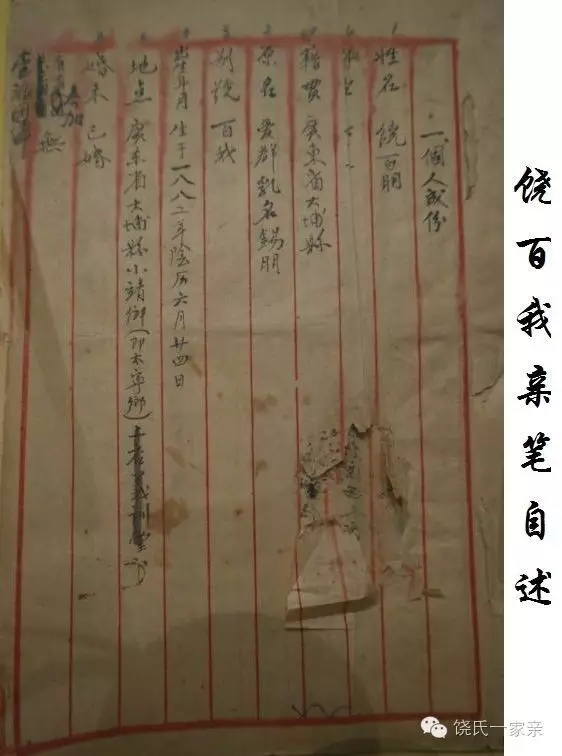 一、個人成份
姓名 饶百朋
籍貫 廣東省大埔縣
原名 愛群乳名錫朋
別號 百我
出生年月 生于一八八二年陰历六月廿四日
地点 廣东省大埔縣小靖鄉(即太寧鄉)
婚未 已婚
加
無
饶百我亲笔自述
饶氏一家亲